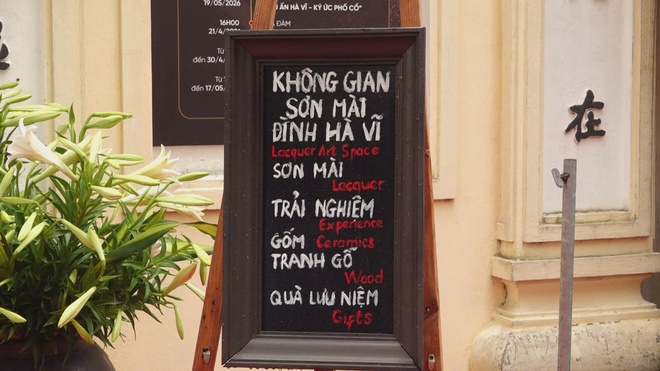 19/05/2026
ẤN HÀ VĨ - KÝ ỨC PHỐ CỔ"
16H00
21/4
ĐÀM
Từ
đến 30/4
đến 17/05
KHÔNG GIAN
SƠN MÀI
ĐÌNH HÀ VĨ
Lacquer Art Space
SƠN MÀI
Lacquer
TRẢI NGHIỆM
Experience
GỐM Ceramics
TRANH GỖ
Wood
QUÀ LƯU NIỆM
Gifts
在